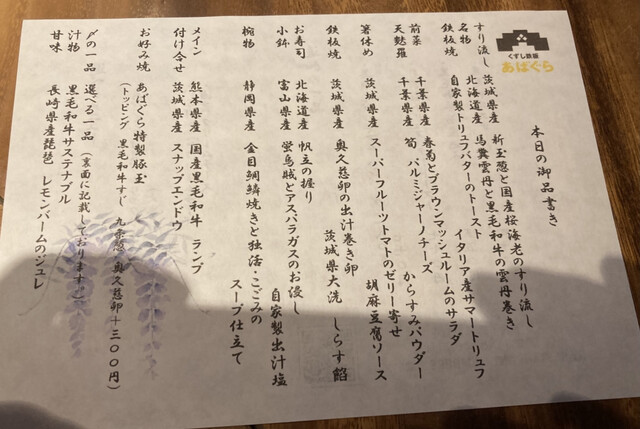 くずし鉄板
あばぐら
本日の御品書き
すり流し 茨城県産 新玉葱と国産桜海老のすり流し
名物 北海道産 馬糞雲丹と黒毛和牛の雲丹巻き
鉄板焼 自家製トリュフバターのトースト イタリア産サマートリュフ
前菜 千葉県産 春菊とブラウンマッシュルームのサラダ
天麩羅 千葉県産 筍 パルミジャーノチーズ からすみパウダー
箸休め 茨城県産 スーパーフルーツトマトのゼリー寄せ 胡麻豆腐ソース
鉄板焼 茨城県産 奥久慈卵の出汁巻き卵 茨城県大洗 しらす餡
お寿司 北海道産 帆立の握り 自家製出汁塩
小鉢 富山県産 蛍烏賊とアスパラガスのお浸し
椀物 静岡県産 金目鯛鱗焼きと独活・こごみの スープ仕立て
メイン 熊本県産 国産黒毛和牛 ランプ
付け合せ 茨城県産 スナップエンドウ
お好み焼 あばぐら特製豚玉
(トッピング 黒毛和牛すじ 九条葱 奥久慈卵+三〇〇円)
〆の一品 選べる一品(裏面に記載しております)
汁物 黒毛和牛サステナブル
甘味 長崎県産琵琶 レモンバームのジュレ